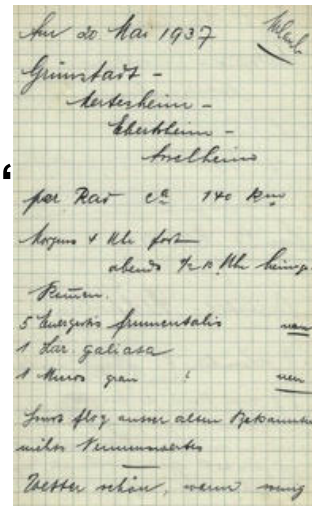 Am 20 Mai 1937 Urlaub
Grünstadt -
Mertesheim -
Ebertsheim -
Asselheim
per Rad ca 140 km
Morgens 4 Uhr fort
abends 1/2 Uhr heimge-
5 frumentalis neu
1 Lar. galiata
1 grau ! neu
flog ausser alten Bekannten
nichts Nennenswertes
Wetter schön, warm wenig